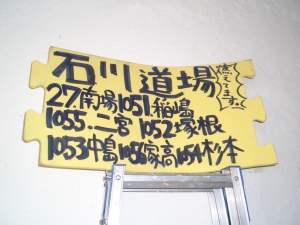 石川道場
燃えてます。
27.南場1051.稲嶋
1055.二宮 1052塚根
1053中島1056家高1054杉本